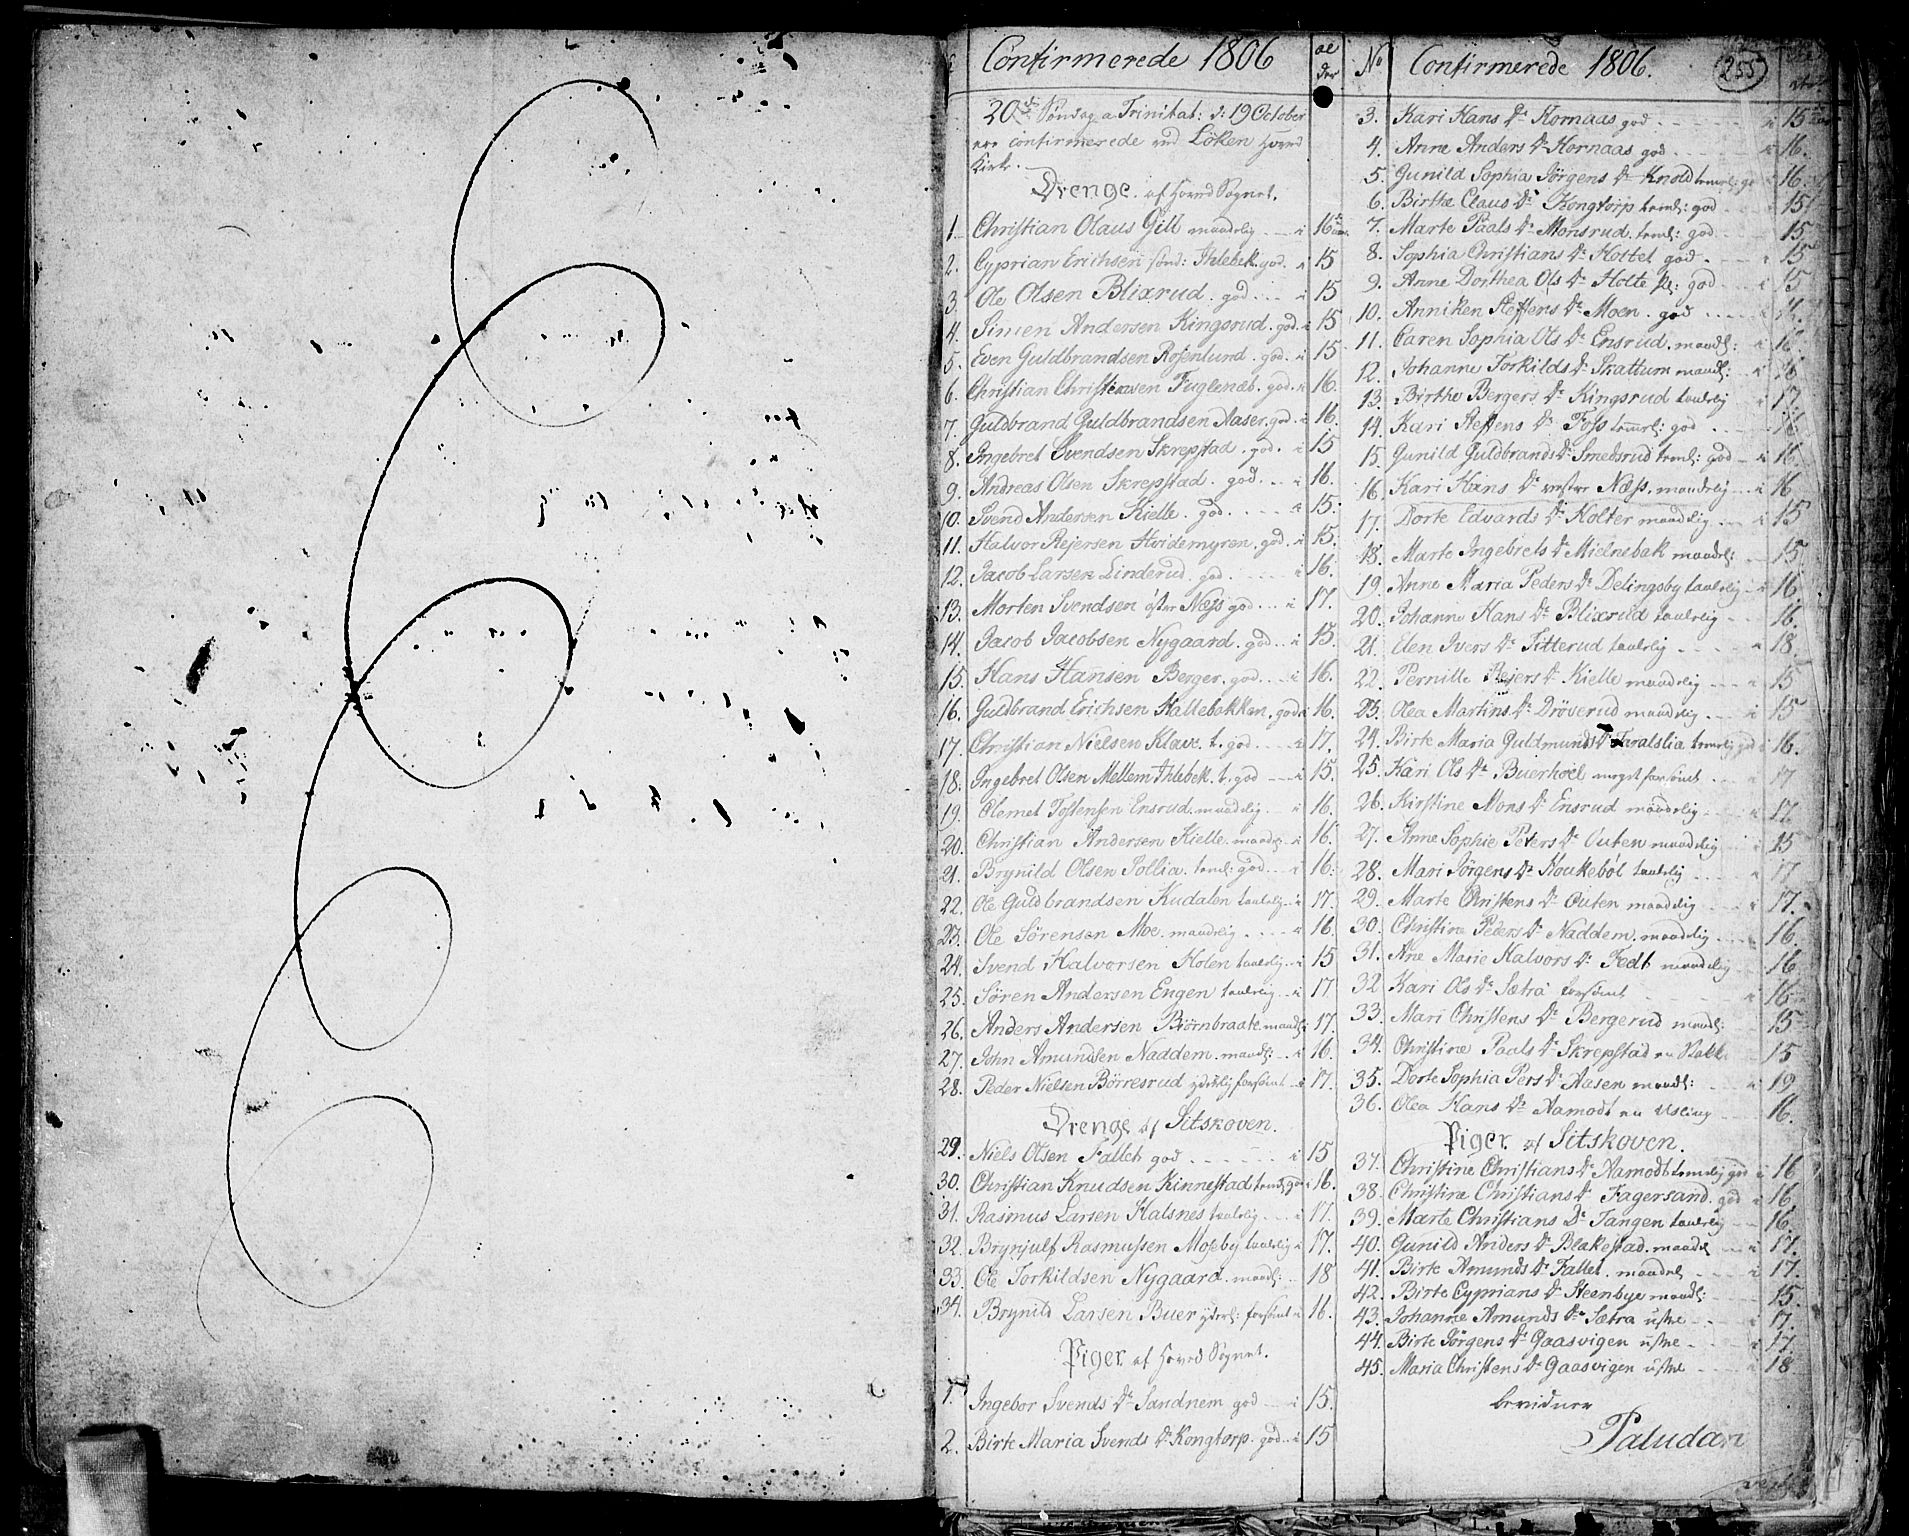 Confirmerede 1806
20de Søndag a Trinitat: d: 19 October
ere confirmerede ved Löken Hoved
Kirke.
Drenge af Hoved Sognet.
1. Christian Olaus Gill maadelig - i 16
2. Cyprian Erichsen sönd: Ihlebek. god. i 15
3. Ole Olsen Blixrud. god... i 15
4. Simen Andersen Kingsrud. god. i 15
5. Even Guldbrandsen Rosenlund. god. i 15
6. Christian Christiansen Fuglenæb. god. i 16.
7. Guldbrand Guldbrandsen Naser. god. i 16.
8. Ingebret Svendsen Skrepstad. god. i 15
9. Andreas Olsen Skrepstad. god... i 16.
10. Svend Andersen Kielle. god.... i 15.
11. Halvor Rejersen Hvidemyren. god. i 15.
12. Jacob Larsen Linderud. god. - i 16.
13. Morten Svendsen öster Næss god... i 17.
14. Jacob Jacobsen Nygaard. god... i 15.
15. Hans Hansen Berger. god... i 16.
16. Guldbrand Erichsen Hallebakken. god i 16.
17. Christian Nielsen Klave. t. god... i 17.
18. Ingebret Olsen Mellem Ihlebek. t. god - i 15.
19. Olemet Tostensen Ensrud. maadelig. - i 16.
20. Christian Andersen Kielle. maadel. - i 16.
21. Brynild Olsen Sollia. teml: god... i 16.
22. Ole Guldbrandsen Kudalen taalelig.. i 17.
23. Ole Sörensen Moe. maadelig.... i 16.
24. Svend Halvorsen Holen taalelig... i 15
25. Sören Andersen Engen taalelig... i 17
26. Anders Andersen Biörnbraate maadl: 17.
27. John Amundsen Naddem. maadl: - i 16.
28. Peder Nielsen Börresrud yderlig forsömt i 17.
Drenge af Sitskoven.
29. Niels Olsen Fallet god - - - i 15
30. Christian Knudsen Kinnestad teml: god i 16.
31. Rasmus Larsen Halsnes taalelig... i 17.
32. Brynjulf Rasmussen Moseby taalelig i 17.
33. Ole Torkildsen Nygaard. maadl:.. 18
34. Brynild Larsen Buer yderl: forsömt i 16.
Piger af Hoved Sognet.
1. Ingebor Svends Dr Sandnem god - i 15.
2. Birte Maria Svends Dr Kongtorp. god.. i 15
No Confirmerede 1806. 255
3. Kari Hans Dr Kornaas god - - i 15
4. Anne Anders Dr Kornaas god - - i 16.
5. Gunild Sophia Jörgens Dr Knold temel: god i 16.
6. Birthe Claus Dr Kongtorp teml: god - 15
7. Marte Paals Dr Monsrud. teml: god - 15
8. Sophia Christians Dr Hostel god. - i 15
9. Anne Dorthea Ols Dr Holte god - i 15
10. Anniken Steffens Dr Moen. god
11. Caren Sophia Ols Dr Ensrud. maadl: i 16
12. Johanne Torkilds Dr Skattum maadl: i 16
13. Birthe Bergers Dr Kingsrud taalelig i 17.
14. Kari Steffens Dr Foss teml: god - 16
15. Gunild Guldbrands Dr Smedsrud teml: god - i 16.
16. Kari Hans Dr vester Næss. maadelig... i 16
17. Dorte Edvards Dr Holter maadelig... i 15
18. Marte Ingebrets Dr Mielnebak maadel: 15.
19. Anne Maria Peders Dr Delingsby taalelig - i 16
20. Johanne Hans Dr Blixrud taalelig - 16.
21. Elen Ivers Dr Titterud taalelig - - i 18.
22. Pernille Rejers Dr Kielle maadelig - - i 15
23. Olea Martins Dr Dröverud maadelig - i 15
24. Birte Maria Guldmunds Dr temelig god i 16.
25. Kari Ols Dr Buerhoel meget forsömt.. i 17
26. Kirstine Mons Dr Ensrud maadelig. - i 17
27. Anne Sophie Peters Dr Outen maadelig i 15
28. Mari Jörgens Dr Houkeböl taalelig... i 17
29. Marte Christens Dr Outen maadelig - i 17.
30. Christine Peders Dr Naddem. maadelig... 16.
31. Ane Marie Halvors Dr Fedt maadelig - 16
32. Kari Ols Dr Sætra forsömt - - i 16
33. Mari Christens Dr Bergerud maadl: 15
34. Christine Paals Dr Skrepstad en 15
35. Dorte Sophia Pers Dr Aasen maadl: - i 19
36. Olea Hans Dr Aamodt en Usling - 16.
Piger af Sitskoven.
37. Christine Christians Dr Aamodt temelig god i 16
38. Christine Christians Dr Fagersand. god i 16
39. Marte Christians Dr Tangen taalelig - 16.
40. Gunild Anders Dr Blakestad. maadel - i 17.
41. Birte Amunds Dr Fallet. maadel - - i 17.
42. Birte Cyprians Dr Steenbye maadl: - 15.
43. Johanne Amunds Dr Sætra uslne - - 17.
44. Birte Jörgens Dr Gaasvigen uslne - - i 17.
45. Maria Christens Dr Gaasvigen uslne - i 18
bevidner
Paludan